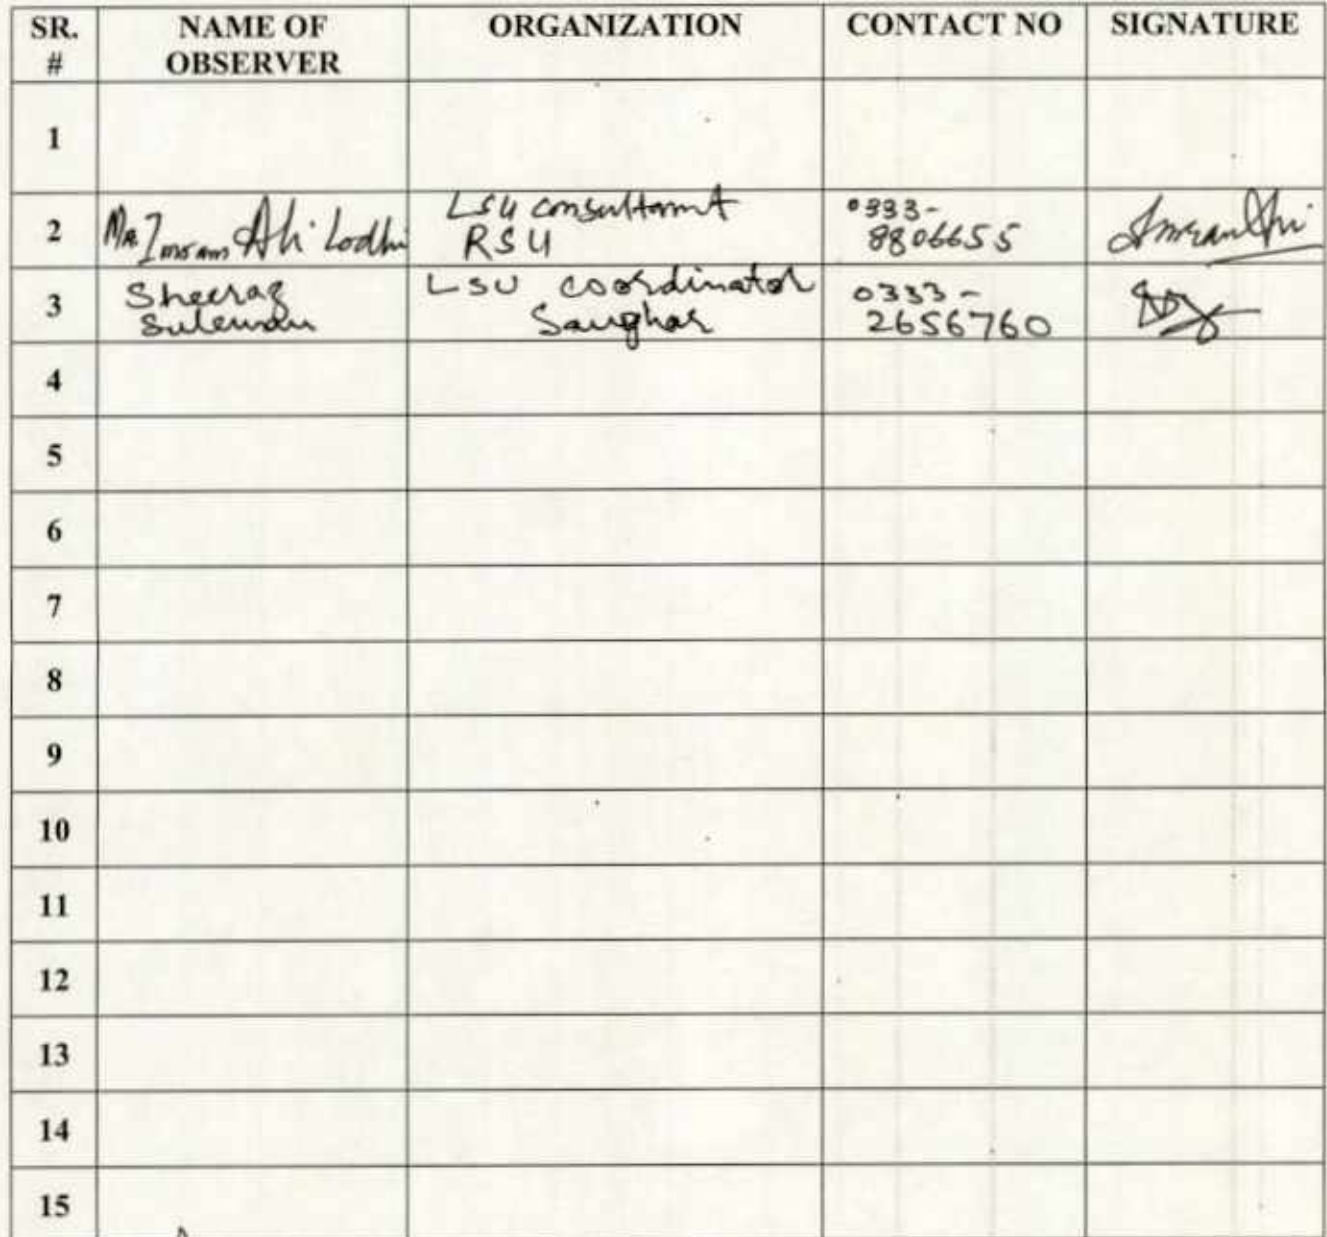 SR. # NAME OF OBSERVER ORGANIZATION CONTACT NO SIGNATURE
1
2 Mr. Imran Ali Lodhi LSU consultamt RSU 0333-8806655 Imran Ali
3 Sheeraz Suleman LSU coordinator Sanghar 0333-2656760
4
5
6
7
8
9
10
11
12
13
14
15